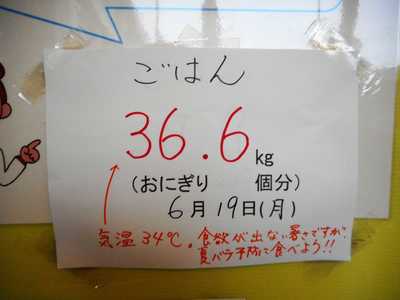 ごはん
36.6kg
(おにぎり 個分)
6月19日(月)
気温34℃。食欲が出ない暑さですが、
夏バテ予防に食べよう!!